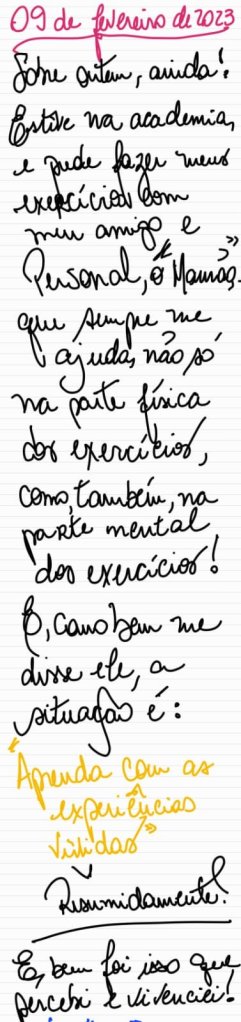 09 de fevereiro de 2023
Sobre ontem, ainda!
Estive na academia,
e pude fazer meus
exercícios com
meu amigo e
Personal, o "
que sempre me
ajuda, não só
na parte física
dos exercícios,
como, também, na
parte mental
dos exercícios!
E, como bem me
disse ele, a
situação é:
"Aprenda com as
experiências
vividas"
Resumidamente!
E, bem foi isso que
percebi e vivenciei!